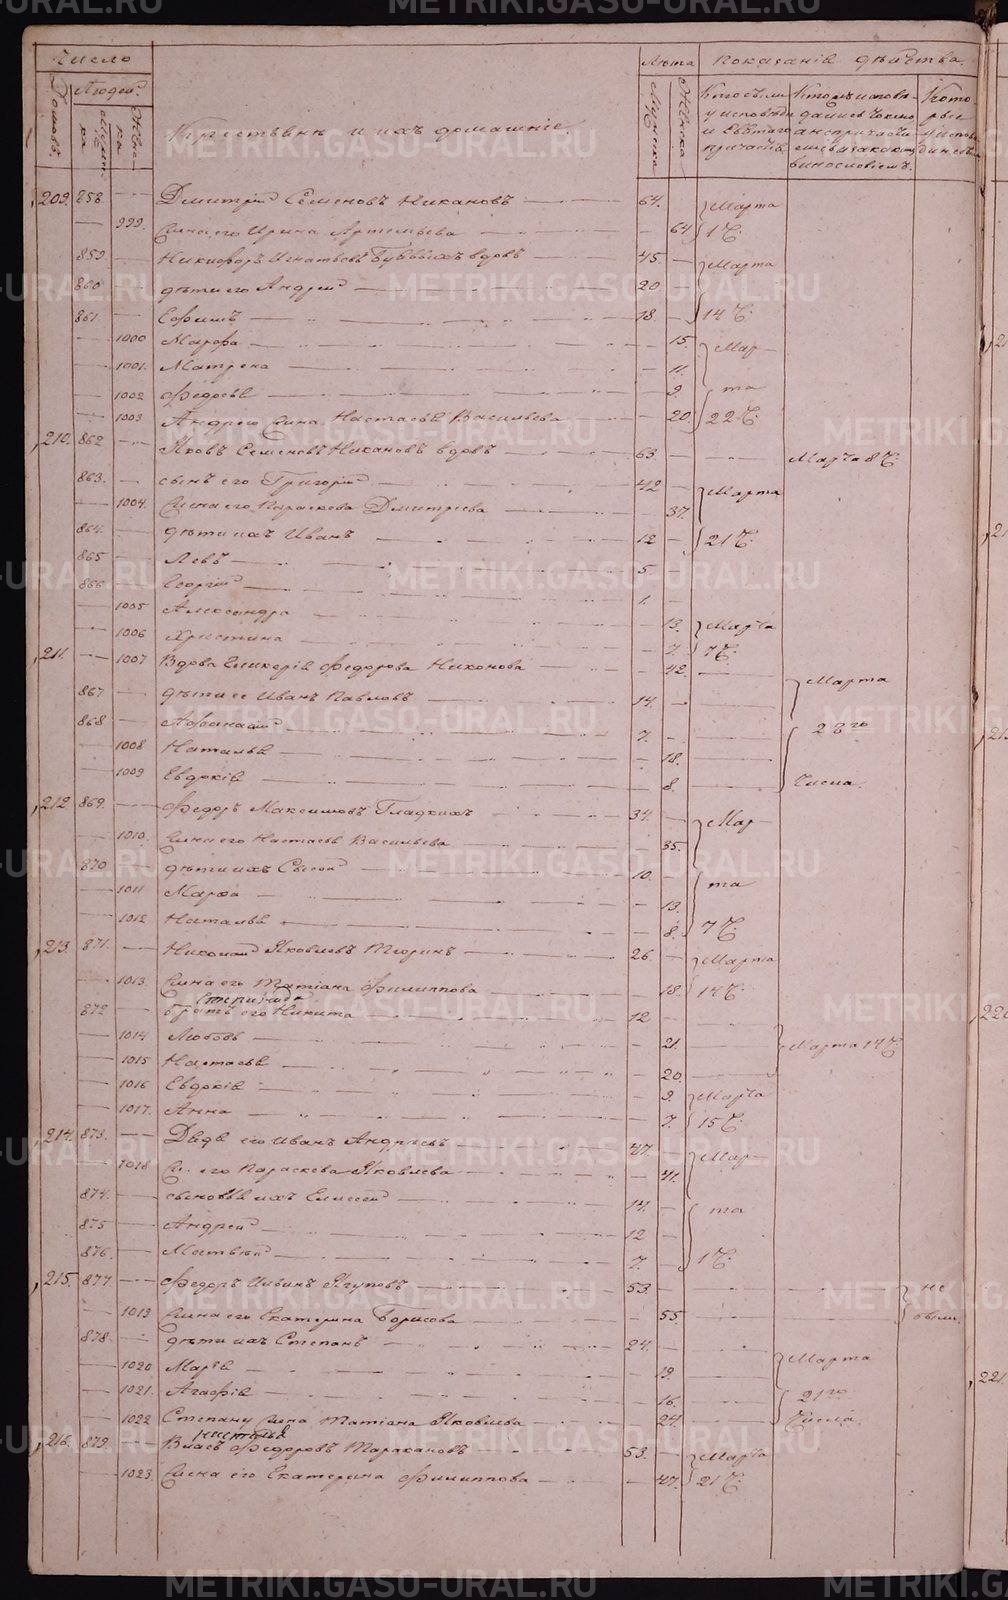 Число
Людей.
Домовъ.
Мужеска
Женска
Крестьяне и ихъ домашніе.
Лѣта
Мужеска
Женска
Показаніе дѣйства.
209. 858. Дмитрій Семеновъ Никановъ 64. Марта
999. Жена его Ирина Артемьева 64 1 Ч.
859. Никифоръ Игнатьевъ вдовъ 45. Марта
860 дѣти его Андрей 20
861 Ефимъ 18. 14 Ч.
1000 Марфа 15. Мар
1001. Матрена 11.
1002 Федосья 9. та
1003 Андрею жена Настасья Васильева 20. 22 Ч.
210. 862 Яковъ Семеновъ Никановъ вдовъ 63. Марта 8 Ч.
863. сынъ его Григорій 42 Марта
1004. Жена его Параскева Дмитріева 37.
864. дѣти ихъ Иванъ 12 21 Ч.
865 Левъ 5
866 Георгій 1.
1005 Александра 13. Марта
1006 Христина 7. 7 Ч.
211. 1007 Вдова Гликерія Федорова Никонова 42. Марта
867 дѣти ее Иванъ Павловъ 14.
868 Афанасій 7. 28го
1008 Наталья 18.
1009 Евдокія 8. Числа.
212 869. Федоръ Максимовъ Гладкихъ 34. Мар
1010. Жена его Настасья Васильева 35.
870 дѣти ихъ Сысой 10. та
1011 Марфа 13.
1012 Наталья 8. 7 Ч.
213. 871. Николай Яковлевъ Тюринъ 26 Марта
1013. Жена его Татіана Филиппова 18. 14 Ч.
872 братъ его Никита 12
1014 Любовь 21. Марта 14 Ч.
1015 Настасья 20.
1016 Евдокія 9. Марта
1017. Анна 7. 15 Ч.
214. 873. Дядя его Иванъ Андреевъ 47. Мар
1018 Ж. его Параскева Яковлева 41.
874. сыновья ихъ Елисей 14. та
875 Андрей 12
876. Матвѣй 7. 1 Ч.
215. 877. Федоръ Ивановъ Ягуповъ 53. не
1019 Жена его Екатерина Борисова 55 были.
878. дѣти ихъ Степанъ 24.
1020 Марья 19. Марта
1021. Агафія 16. 21го
1022 Степану жена Татіана Яковлева 24. Числа.
216. 879. Власъ Федоровъ Таракановъ 53. Марта
1023. Жена его Екатерина Филиппова 47. 21 Ч.
METRIKI.GASO-URAL.RU